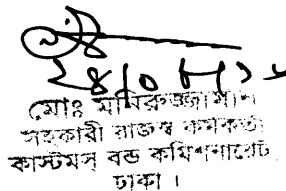 মোঃ মনিরুজ্জামান
সহকারী রাজস্ব কর্মকর্তা
কাস্টমস্ বন্ড কমিশনারেট
ঢাকা ।